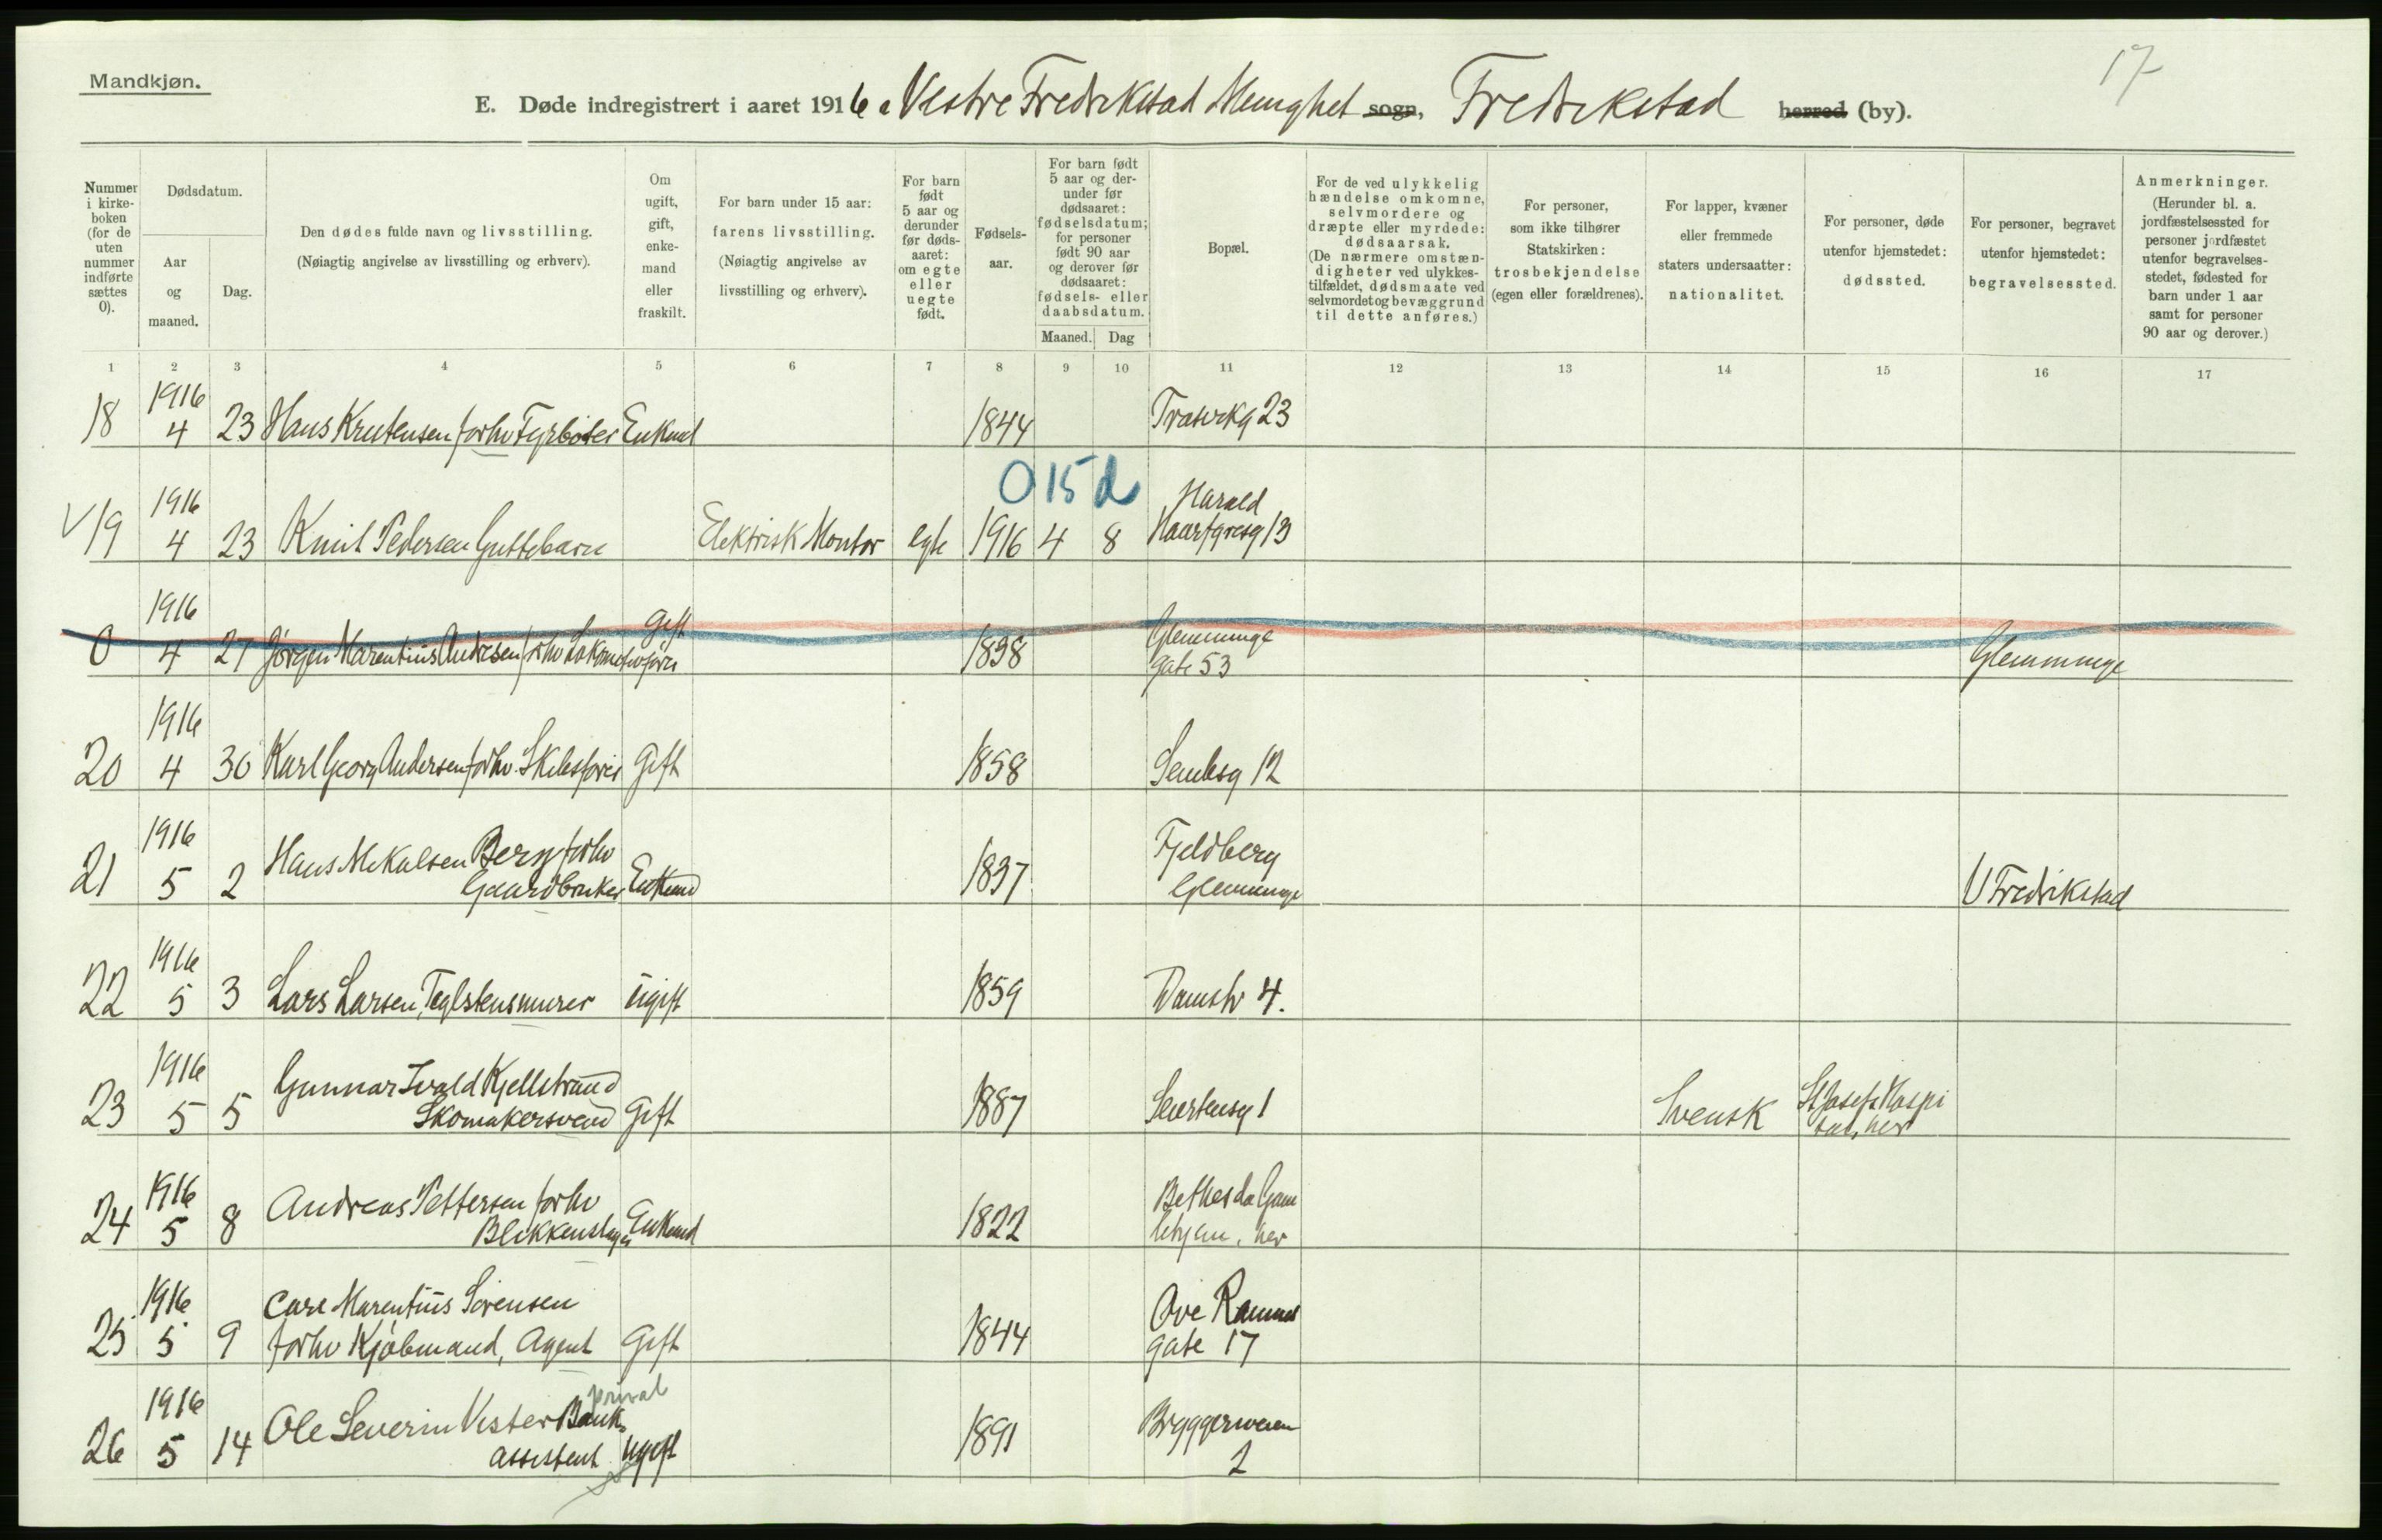 Mandkjøn.
17
E. Døde indregistrert i aaret 1916 i Vestre Fredrikstad Menighet sogn, Fredrikstad herred (by).
Nummer i kirkeboken (for de uten nummer indførte sættes 0).
Dødsdatum.
Aar og maaned.
Dag.
Den dødes fulde navn og livsstilling.
(Nøiagtig angivelse av livsstilling og erhverv).
Om ugift, gift, enkemand eller fraskilt.
For barn under 15 aar: farens livsstilling.
(Nøiagtig angivelse av livsstilling og erhverv).
For barn født 5 aar og derunder før dødsaaret: om egte eller uegte født.
Fødselsaar.
For barn født 5 aar og derunder før dødsaaret: fødselsdatum; for personer født 90 aar og derover før dødsaaret: fødsels- eller daabsdatum.
Maaned.
Dag
Bopæl.
For de ved ulykkelig hændelse omkomne, selvmordere og dræpte eller myrdede: dødsaarsak.
(De nærmere omstændigheter ved ulykkestilfældet, dødsmaate ved selvmordet og bevæggrund til dette anføres.)
For personer, som ikke tilhører Statskirken: trosbekjendelse (egen eller forældrenes).
For lapper, kvæner eller fremmede staters undersaatter: nationalitet.
For personer, døde utenfor hjemstedet: dødssted.
For personer, begravet utenfor hjemstedet: begravelsessted.
Anmerkninger.
(Herunder bl. a. jordfæstelsessted for personer jordfæstet utenfor begravelsesstedet, fødested for barn under 1 aar samt for personer 90 aar og derover.)
1 2 3 4 5 6 7 8 9 10 11 12 13 14 15 16 17
18 1916 4 23 Hans Kristensen forhv Fyrbøter Enkmd 1844 23
0 15 d
19 1916 4 23 Knut Pedersen Guttebarn Elektrisk Montør egte 1916 4 8 Harald Haarfgresg 13
0 1916 4 27 Jörgen Marentius Andresen forhv Lokomotivförer Gift 1838 Glemminge gate 53 Glemminge
20 1916 4 30 Karl Georg Andersen forhv. Skibsförer Gift 1858 12
21 1916 5 2 Hans Mikalsen Berg forhv
Gaardbruker Enkemd 1837 Fjeldberg Glemminge V Fredrikstad
22 1916 5 3 Lars Larsen, Teglstensmurer ugift 1859 Damstr 4.
23 1916 5 5 Gunnar Ivald Kjellstrand
Skomakersvend Gift 1887 1 Svensk St Josefs Hospital, her
24 1916 5 8 Andreas Pettersen forhv
Blikkenslager Enkemd 1822 Bethesda Gamlehjem, her
25 1916 5 9 Carl Marentius Sörensen
forhv Kjöbmand, Agent Gift 1844 Ove Rammes gate 17
privat
26 1916 5 14 Ole Severin Vister Bank
assistent ugift 1891 Bryggeriveien 2